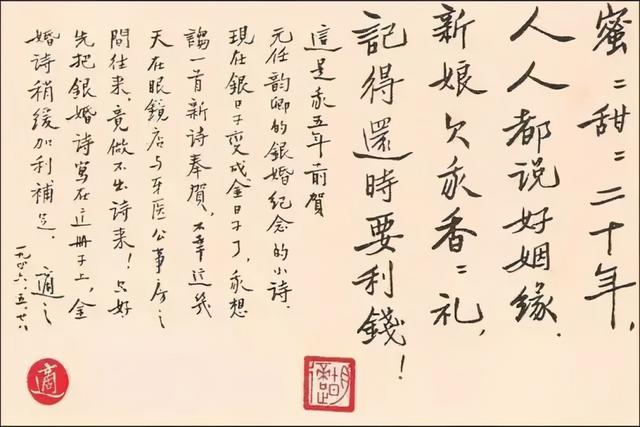 蜜〻甜〻二十年,
人人都说好姻緣.
新娘欠我香〻礼,
記得還時要利錢!
這是我五年前賀
元任韵卿的銀婚紀念的小诗.
現在銀日子变成金日子了,我想
謅一首新诗奉賀,不幸這幾
天在眼鏡店与牙医公事房之
間往来,竟做不出诗来!只好
先把銀婚诗寫在這册子上,金
婚诗稍缓加利補足. 適之
一九四六.五.廿八
胡適
適